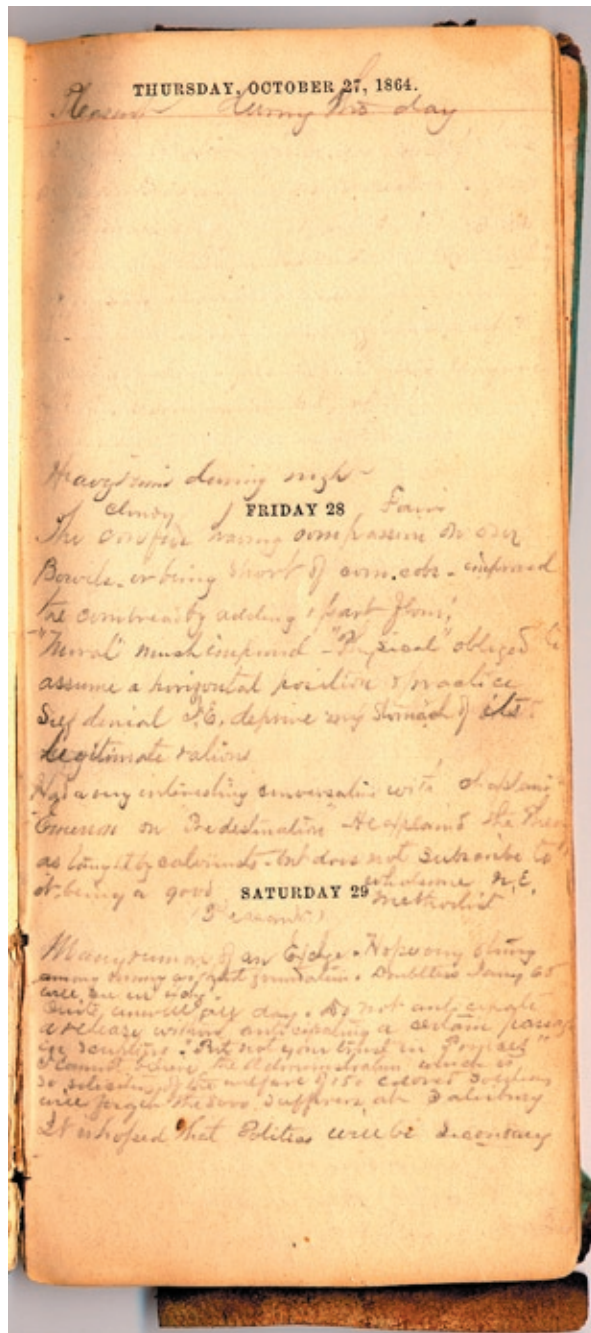 THURSDAY, OCTOBER 27, 1864.
Pleasant during the day
Heavy rains during night
cloudy Fair
FRIDAY 28
The having compassion on our
Bowels or being short of corn.cobs - improved
the cornbread by adding part flour,
"Moral" much improved - "Physical" obliged to
assume a horizontal position & practice
Self denial I.E. deprive my Stomach of its
legitimate rations
Had a very interesting conversation with chaplain
Emerson on "Predestination" He explains the Theory
as taught by calvinists - but does not Subscribe to
it - being a good wholesome M.E.
Methodist
SATURDAY 29
(Pleasant)
Many rumors of an Exchge. Hope any thing
among enemy as just foundation. Doubtless Many 65
will be in
Quite unwell all day. Do not anticipate
a release without anticipating a certain passage
in Scripture: "Put not your trust in Princes"
I cannot believe the Administration which is
so solicitous of the welfare of 150 colored Soldiers
will forget the 8000 Sufferers at Salisbury
It is hoped that Politics will be Secondary